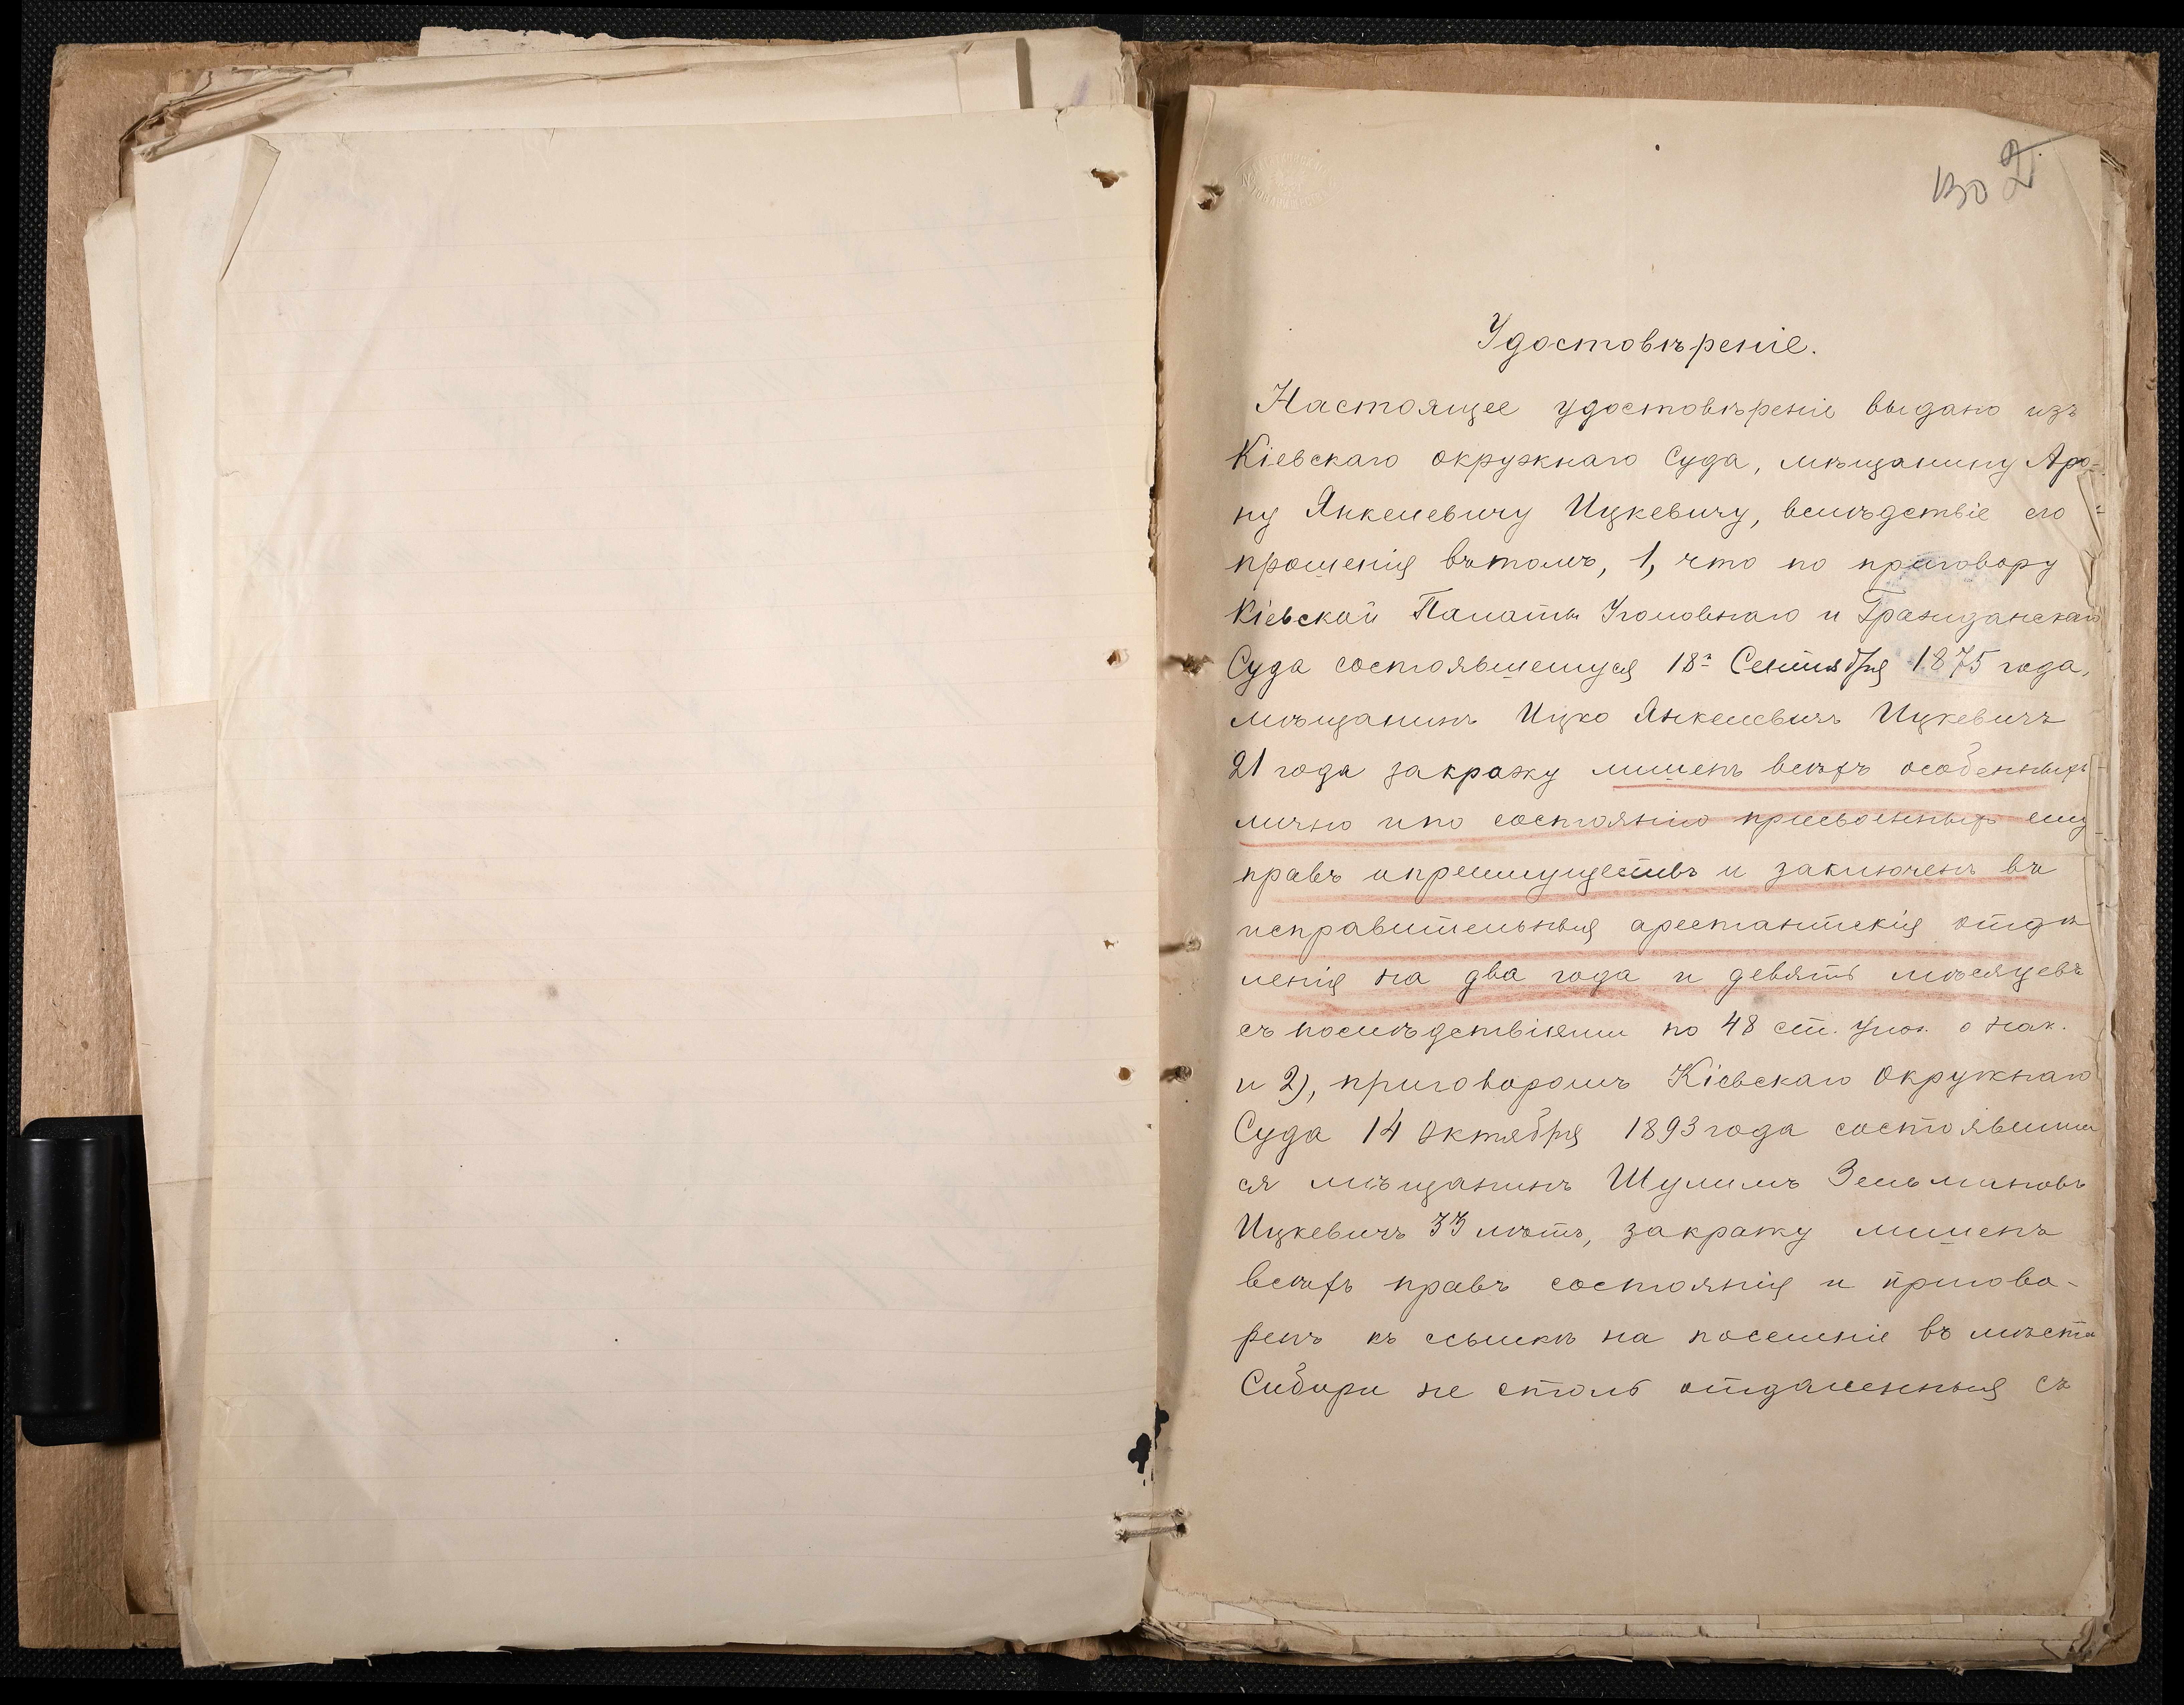 2
Удостовѣреніе.
Настоящее удостовѣреніе выдано изъ
Кіевскаго окружнаго Суда, мѣщанину Аро-
ну Янкелевичу Ицкевичу, вслѣдствіе его
прошенія въ томъ, 1, что по приговору
Кіевской Палаты Уголовнаго и Гражданскаго
Суда состоявшемуся 18го Сентября 1875 года,
мѣщанинъ Ицко Янкелевичъ Ицкевичъ
21 года за кражу лишенъ всѣхъ особенныхъ
лично и по состоянію присвоенныхъ ему
правъ и преимуществъ и заключенъ въ
исправительныя арестантскія отдѣ
ленія на два года и девять мѣсяцевъ
съ послѣдствіями по 48 ст. улож. о нак.
и 2), приговоромъ Кіевскаго Окружнаго
Суда 14 октября 1893 года состоявшим
ся мѣщанинъ Шулимъ Зельмановъ
Ицкевичъ 33 лѣтъ, за кражу лишенъ
всѣхъ правъ состоянія и пригово-
ренъ къ ссылкѣ на поселеніе въ мѣста
Сибири не столь отдаленныя съ